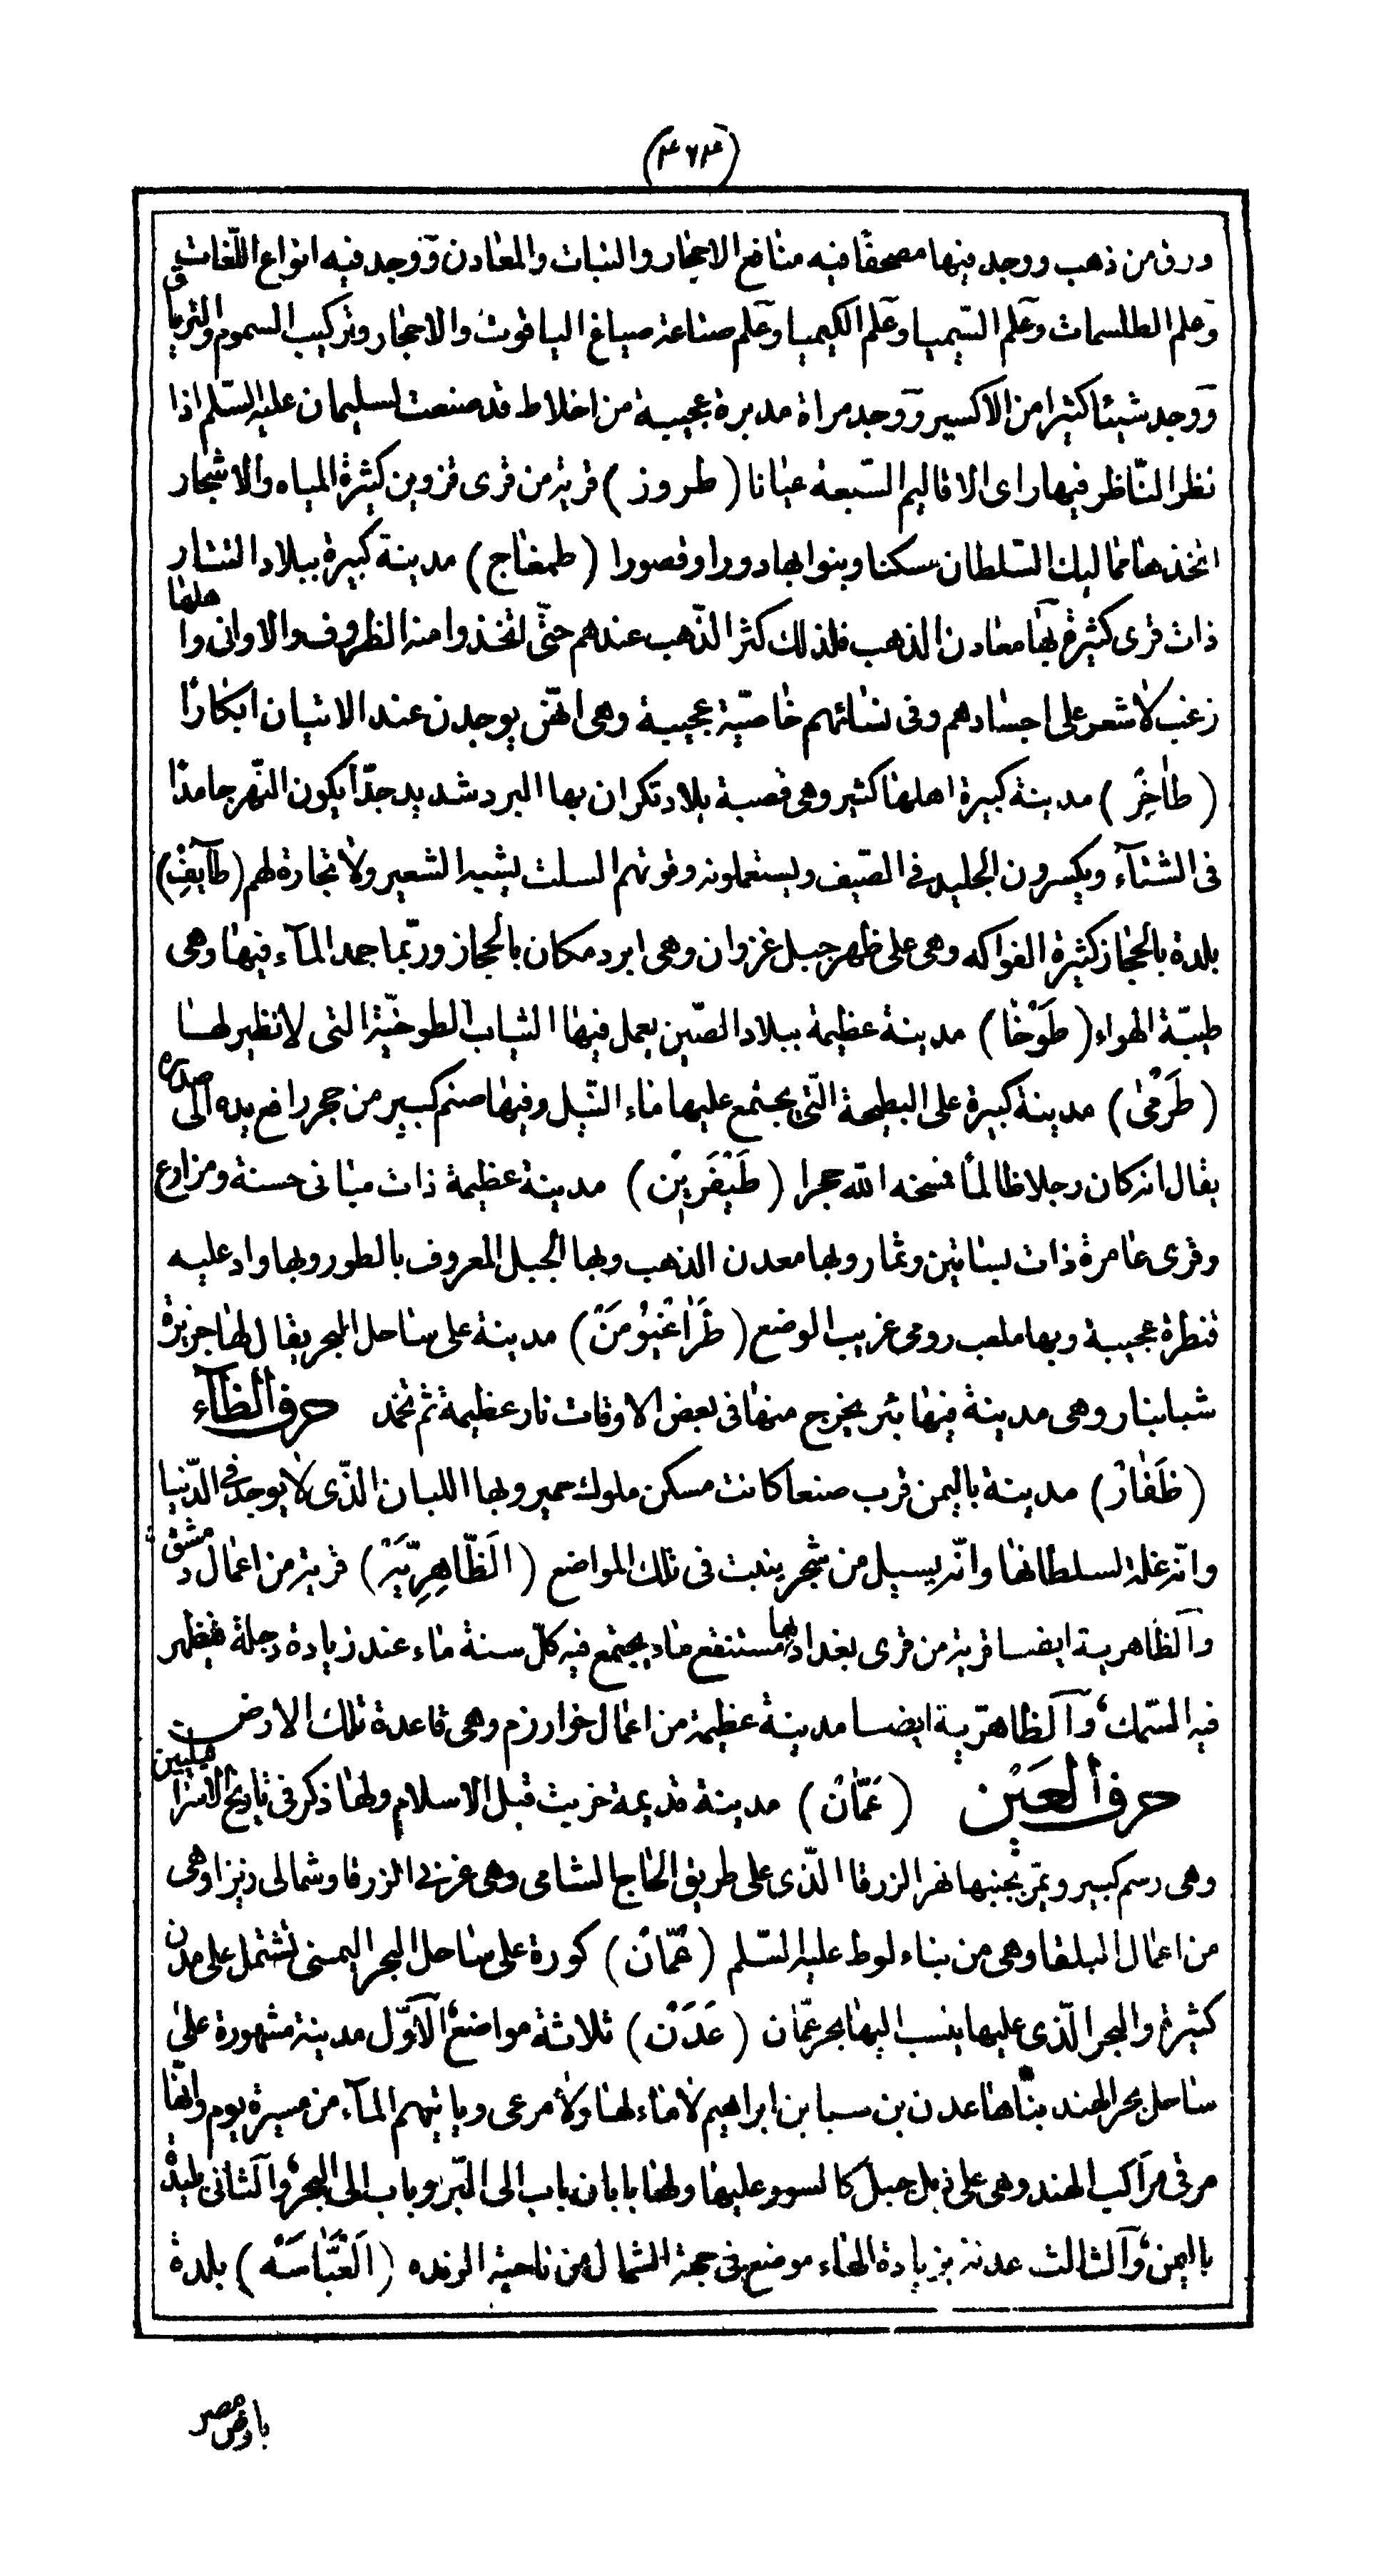 (٤٦٣)
ورق من ذهب ووجد فيها مصحفا فيه منافع الاحجار والنبات والمعادن ووجد فيه انواع اللّغات
وعلم الطلسمات وعلم السّيميا وعلم الكيميا وعلم صناعة صباغ الياقوت والاحجار وتركيب السموم والترياق
ووجد شيئا كثيرا من الاكسير ووجد مراة مدبرة عجيبة من اخلاط قد صنعت لسليمان عليه السّلم اذا
نظر النّاظر فيها راى الاقاليم السّبعة عيانا (طروز) قرية من قرى قزوين كثيرة المياه والاشجار
اتخذها مماليك السّلطان سكنا وبنوا بها دورا وقصورا (طمغاج) مدينة كبيرة ببلاد التتار
ذات قرى كثيرة بها معادن الذهب فلذلك كثر الذّهب عندهم حتّى اتخذوا منه الظروف والاوانى واهلها
زعب لا شعر على اجسادهم وفى نسائهم خاصّية عجيبة وهى انهّن يوجدن عند الاتيان ابكارًا
(طاخِرُ) مدينة كبيرة اهلها كثير وهى قصبة بلاد تكران بها البرد شديد جدّا يكون النّهر جامدًا
فى الشتآء ويكسرون الجليد فى الصّيف ويستعملونه وقوتهم السلت يشبه الشعير ولا تجارة لهم (طآيف)
بلدة بالحجاز كثيرة الفواكه وهى على ظهر جبل غزوان وهى ابرد مكان بالحجاز وربّما جمد المآء فيها وهى
طيبّة الهواء (طَوْخَا) مدينة عظيمة ببلاد الصّين يعمل فيها الثياب الطوخيّة التى لا نظير لها
(طَرَمْىٰ) مدينة كبيرة على البطيحة التّى يجتمع عليها ماء النّيل وفيها صنم كبير من حجر رافع يده الى صدره
يقال انه كان رجلا ظالمًا فمسخه الله حجرا (طَيْفَرِيْن) مدينة عظيمة ذات مبانى حسنة ومزارع
وقرى عامرة ذات بساتين وثمار وبها معدن الذهب وبها الجبل المعروف بالطور وبها واد عليه
قنطرة عجيبة وبها ملعب رومى غريب الوضع (طَرَاغَنْيُومَنْ) مدينة على ساحل البحر يقال لها جزيرة
شبابنار وهى مدينة فيها بئر يخرج منها فى بعض الاوقات نار عظيمة ثم تخمد حرف الظآء
(ظَفَارْ) مدينة باليمن قرب صنعا كانت مسكن ملوك حمير وبها اللبان الذّى لا يوجد فى الدّنيا
وانّه غلة لسلطانها وانّه يسيل من شجر ينبت فى تلك المواضع (الَظّاهِرِيّه) قرية من اعمال دمشق
وآلظاهرية ايضا قرية من قرى بغداد بها مستنقع ماد يجتمع فيه كلّ سنة ماء عند زيادة دجلة فيظهر
فيه السّمك وآلظاهرّية ايضا مدينة عظيمة من اعمال خوارزم وهى قاعدة تلك الارض
حرف العَيْن (عَمّانْ) مدينة قديمة خربت قبل الاسلام ولها ذكر فى تاريخ الاسرائيليين
وهى رسم كبير ويمّر بجنبها نهر الزرقا الذّى على طريق الحاج الشامى وهى غربى الزرقا وشمالى زيزا وهى
من اعمال البلقا وهى من بناء لوط عليه السّلم (عُمّانْ) كورة على ساحل البحر اليمنى تشتمل على مدن
كثيرة والبحر الذّى عليها ينسب اليها بحر عمّان (عَدَنْ) ثلاثة مواضع آلاوّل مدينة مشهورة على
ساحل بحر الهند بناها عدن بن سبا بن ابراهيم لا ماء لها ولا مرعى وياتيهم المآء من مسيرة يوم وانّها
مرقى مراكب الهند وهى على ذيل جبل كالسور عليها ولها بابان باب الى البّر وباب الى البحر وآلثانى
باليمن وآلثالث عدنة بزيادة الهاء موضع فى جهة الشمال من ناحية الربذه (اَلَعَّبَاسَه) بلدة
بارض مصر